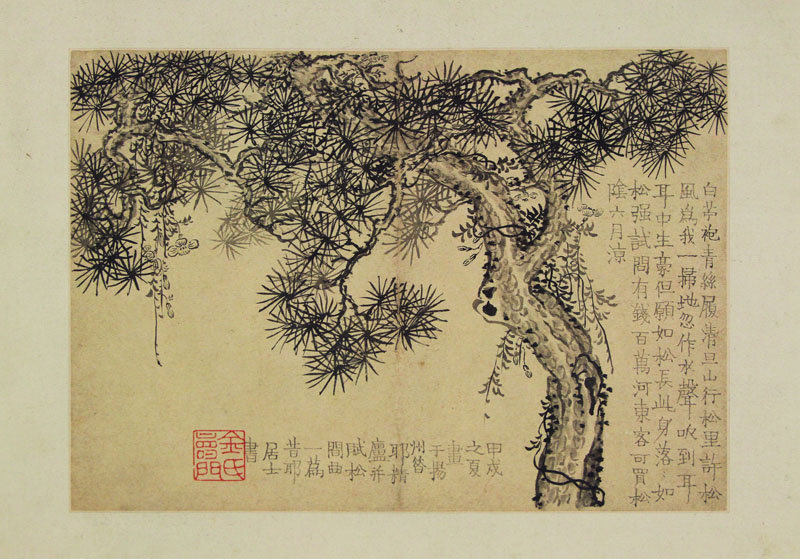 白苧袍青絲履清旦山行松里許松
風爲我一掃地忽作水聲吹到耳
耳中生豪但願如松長此身落〻如
松强試問有錢百萬河東客可買松
陰六月涼
甲戌
之夏
畫
于揚
州
耶精
廬并
賦松
間曲
一
昔耶
居士
書
金氏
壽門